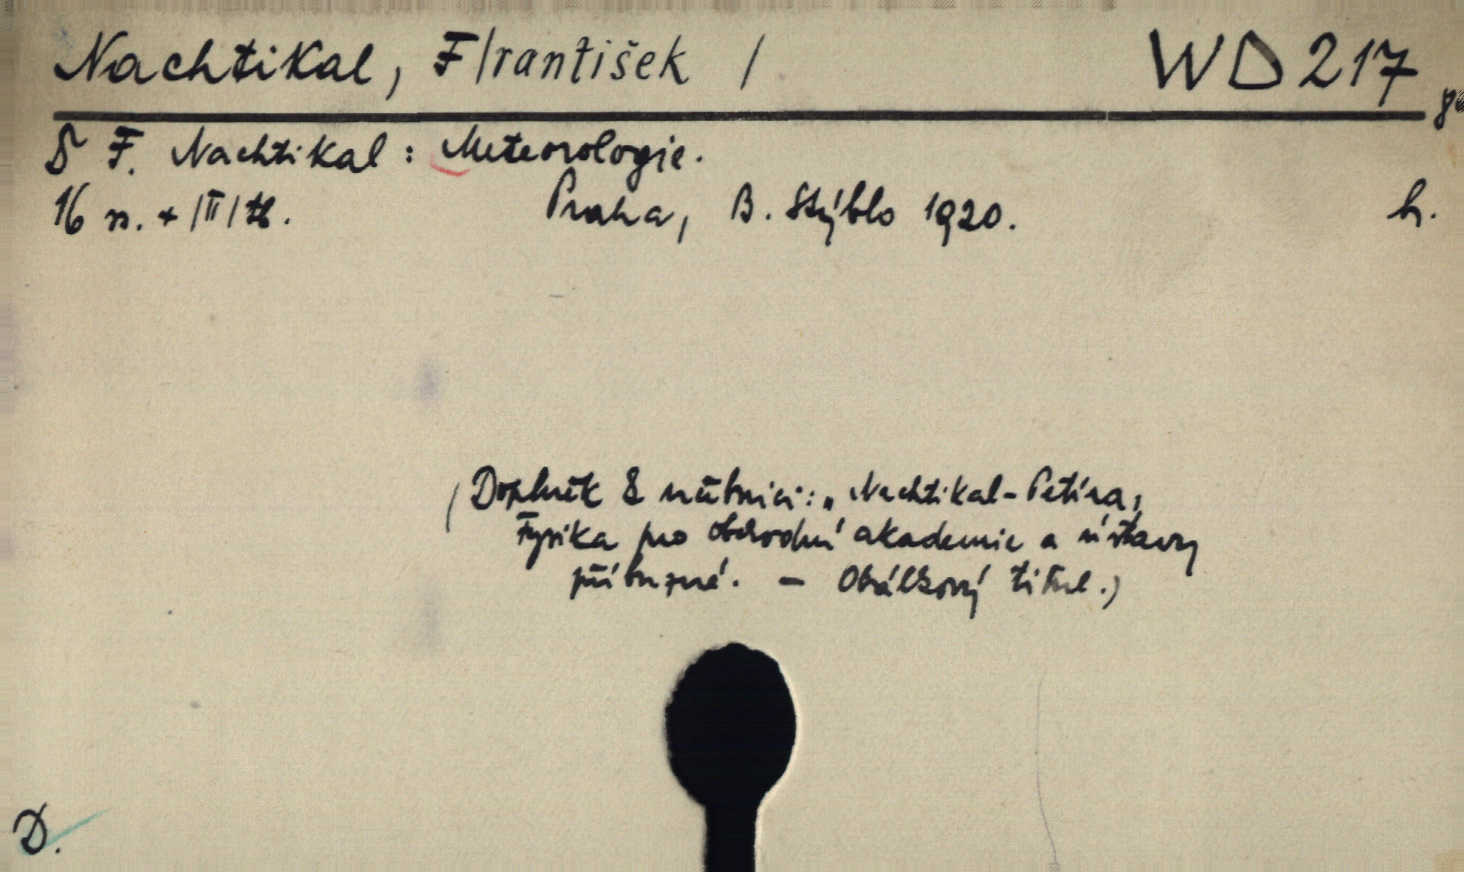 Nachtikal, F/rantišek / WD 217
F. Nachtikal: Meteorologie.
16 s. + /II/ tb. Praha, B. Stýblo 1920. h.
(Doplněk k učebnici: „Nachtikal-Petira,
Fysika pro obchodní akademie a ústavy
příbuzné. — Obálkový titul.)
D.